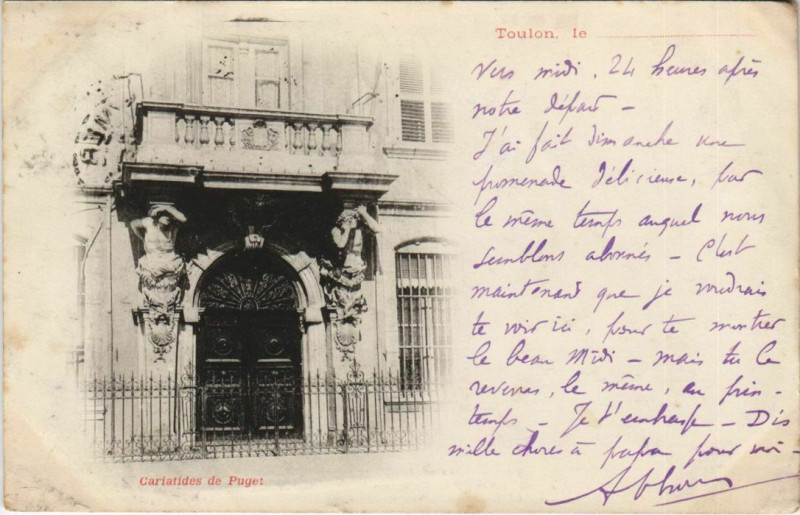 Toulon, le
Vers midi, 24 heures après
notre départ —
J'ai fait dimanche une
promenade délicieuse, par
le même temps auquel nous
semblons abonnés — C'est
maintenant que je voudrais
te voir ici, pour te montrer
le beau Midi — mais tu le
reverras, le même, au prin-
temps — Je t'embrasse — Dis
mille choses à papa pour moi —
Cariatides de Puget